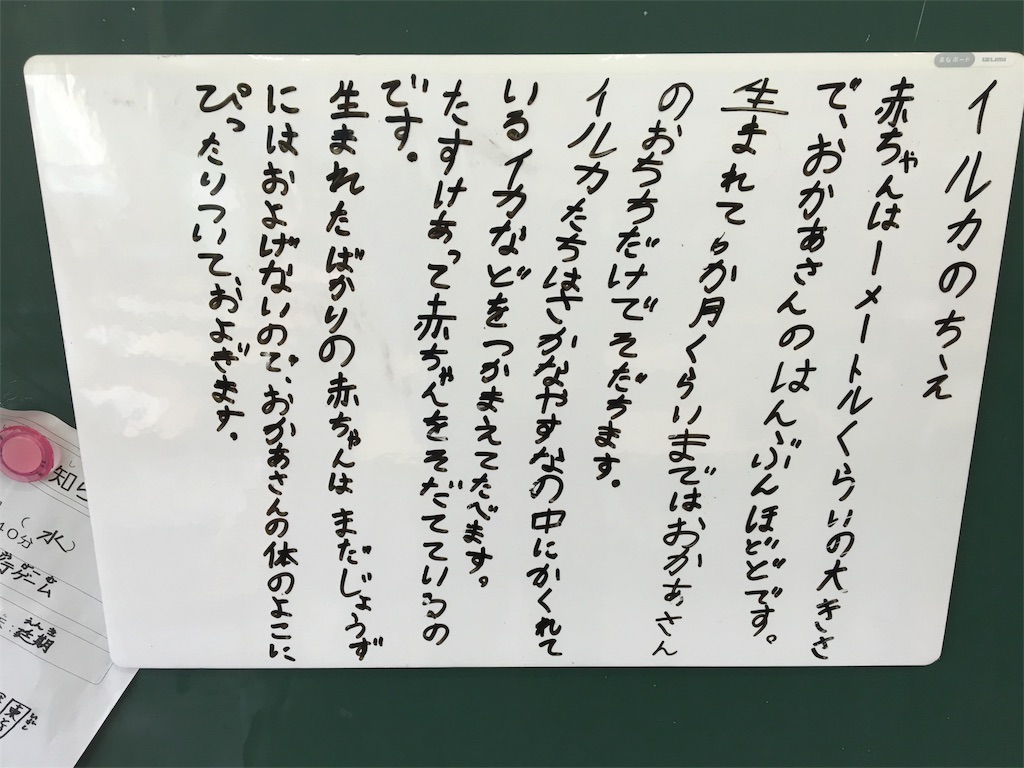 イルカのちえ
赤ちゃんは一メートルくらいの大きさ
で、おかあさんのはんぶんほどです。
生まれて六か月くらいまではおかあさん
のおちちだけでそだちます。
イルカたちはさかなやすなの中にかくれて
いるイカなどをつかまえてたべます。
たすけあって赤ちゃんをそだてているの
です。
生まれたばかりの赤ちゃんはまだじょうず
にはおよげないので、おかあさんの体のよこに
ぴったりついて、およぎます。
知ら
40分(水)
ゲーム
えんき
延期
東